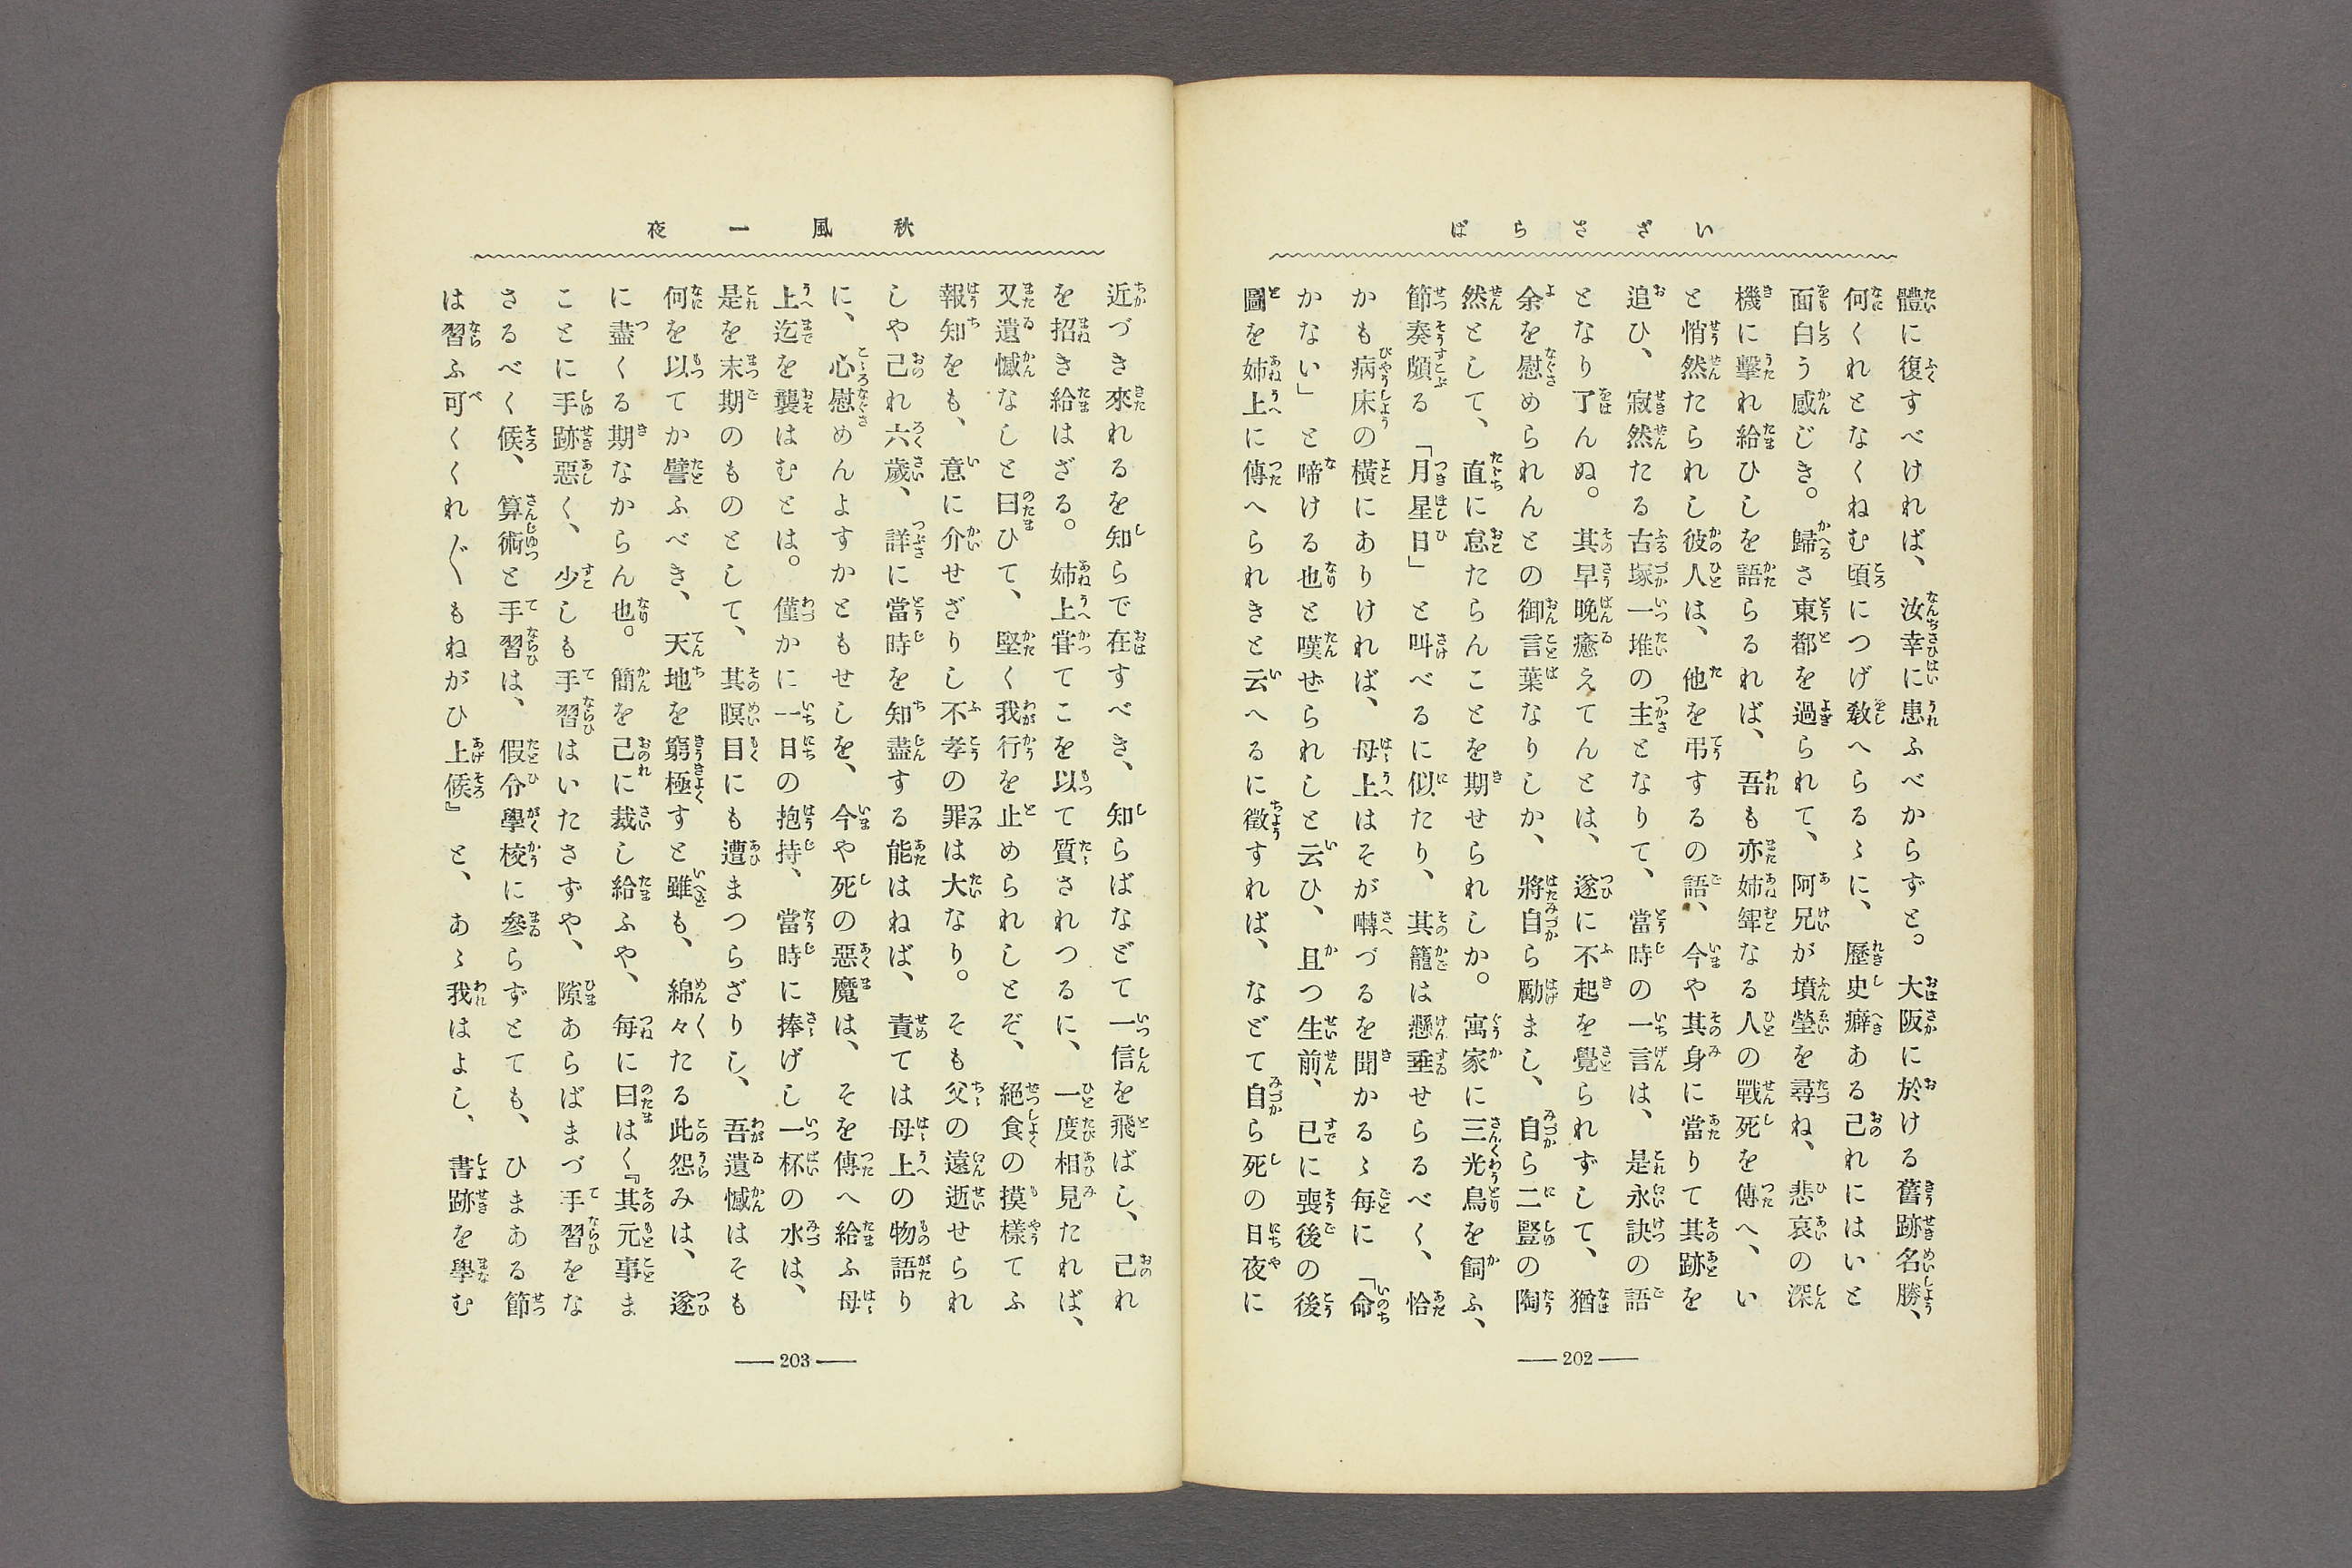 いざさらば
體に復すべければ、汝幸に患ふべからずと。大阪に於ける舊跡名勝、
何くれとなくねむ頃につげ教へらるゝに、歷史癖ある己れにはいと
面白う感じき。歸さ東都を過られて、阿兄が墳塋を尋ね、悲哀の深
機に擊れ給ひしを語らるれば、吾も亦姉聟なる人の戰死を傳へ、い
と悄然たられし彼人は、他を弔するの語、今や其身に當りて其跡を
追ひ、寂然たる古塚一堆の主となりて、當時の一言は、是永訣の語
となり了んぬ。其早晩癒えてんとは、遂に不起を覺られずして、猶
余を慰められんとの御言葉なりしか、將自ら勵まし、自ら二豎の陶
然として、直に怠たらんことを期せられしか。寓家に三光鳥を飼ふ、
節奏頗る「月星日」と叫べるに似たり、其籠は懸垂せらるべく、恰
かも病床の橫にありければ、母上はそが囀づるを聞かるゝ每に「命
かない」と啼ける也と嘆ぜられしと云ひ、且つ生前、已に喪後の後
圖を姉上に傳へられきと云へるに徵すれば、などて自ら死の日夜に
202
秋風一夜
近づき來れるを知らで在すべき、知らばなどて一信を飛ばし、己れ
を招き給はざる。姉上甞てこを以て質されつるに、一度相見たれば、
又遺憾なしと曰ひて、堅く我行を止められしとぞ、絕食の摸樣てふ
報知をも、意に介せざりし不孝の罪は大なり。そも父の遠逝せられ
しや己れ六歲、詳に當時を知盡する能はねば、責ては母上の物語り
に、心慰めんよすかともせしを、今や死の惡魔は、そを傳へ給ふ母
上迄を襲はむとは。僅かに一日の抱持、當時に捧げし一杯の水は、
是を末期のものとして、其瞑目にも遭まつらざりし、吾遺憾はそも
何を以てか譬ふべき、天地を窮極すと雖も、綿々たる此怨みは、遂
に盡くる期なからん也。簡を己に裁し給ふや、每に曰はく『其元事ま
ことに手跡惡く、少しも手習はいたさずや、隙あらばまづ手習をな
さるべく候、算術と手習は、假令學校に參らずとても、ひまある節
は習ふ可くくれ〴〵もねがひ上候』と、あゝ我はよし、書跡を學む
203